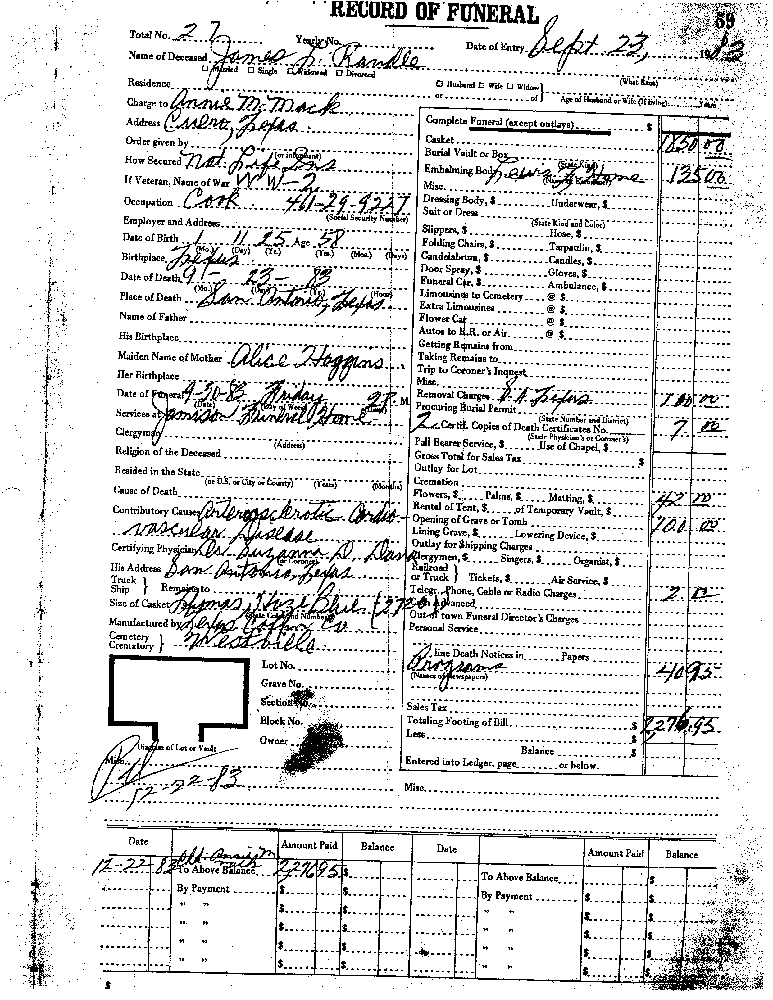 RECORD OF FUNERAL
59
Total No. 27 Yearly No. Date of Entry Sept. 23, 1983
Name of Deceased James Randle
☐ Married ☐ Single ☐ Widowed ☐ Divorced
(What Race)
Residence ☐ Husband ☐ Wife ☐ Widow
or of Age of Husband or Wife (if living) years
Charge to Annie M. Mack
Address Cuero, Texas.
Order given by
(or informant)
How Secured Nat. Life Ins
If Veteran, Name of War WW-2
Occupation Cook 461-29-9227
(Social Security Number)
Employer and Address
Date of Birth 1 11 25 Age 58
(Mo.) (Day) (Yr.) (Yrs.) (Mos.) (Days)
Birthplace Texas
Date of Death 9 - 23 - 83
(Mo.) (Hour)
Place of Death San Antonio, Texas
Name of Father
His Birthplace
Maiden Name of Mother Alice Hoggins
Her Birthplace
Date of Funeral Friday M.
(Date) (Day of Week) (Hour)
Services at Jamison Funeral Home
Clergyman
(Address)
Religion of the Deceased
Resided in the State
(or U.S. or City or County) (Years) (Months)
Cause of Death
Contributory Cause Arteriosclerotic Cardio
vascular Disease
Certifying Physician Dr. Suzanna D. Dana
(or Coroner)
His Address San Antonio, Texas
Truck
Ship } Remains to
Size of Casket
(State Color and Number)
Manufactured by Coffin Co
Cemetery
Crematory }
Lot No.
Grave No.
Section No.
Block No.
Owner
Diagram of Lot or Vault
Misc.
Pd
12-22-83
Complete Funeral (except outlays) $
Casket 1850 00
Burial Vault or Box
(State Kind)
Embalming Body Home 135 00
Misc.
Dressing Body, $ Underwear, $
Suit or Dress
(State Kind and Color)
Slippers, $ Hose, $
Folding Chairs, $ Tarpaulin, $
Candelabrum, $ Candles, $
Door Spray, $ Gloves, $
Funeral Car, $ Ambulance, $
Limousines to Cemetery @ $
Extra Limousines @ $
Flower Car @ $
Autos to R.R. or Air @ $
Getting Remains from
Taking Remains to
Trip to Coroner's Inquest
Misc.
Removal Charges 100 00
Procuring Burial Permit
(State Number and District)
2 Certif. Copies of Death Certificates No. 7 00
(State Physician's or Coroner's)
Pall Bearer Service, $ Use of Chapel, $
Gross Total for Sales Tax $
Outlay for Lot
Cremation
Flowers, $ Palms, $ Matting, $ 42 00
Rental of Tent, $ of Temporary Vault, $
Opening of Grave or Tomb 100 00
Lining Grave, $ Lowering Device, $
Outlay for Shipping Charges
Clergymen, $ Singers, $ Organist, $
Railroad
or Truck } Tickets, $ Air Service, $
Telegr., Phone, Cable or Radio Charges 2 00
Cash Advanced
Out-of town Funeral Director's Charges
Personal Service
Line Death Notices in Papers
Programs 40 95
(Names of Newspapers)
Sales Tax
Totaling Footing of Bill $ 2276.95
Less $
Balance $
Entered into Ledger, page or below.
Misc.
Date Amount Paid Balance Date Amount Paid Balance
12-22-83 To Above Balance 2276 95 $ To Above Balance $
By Payment $ By Payment $
" " $ " " $
" " $ " " $
" " $ " " $
" " $ " " $
$